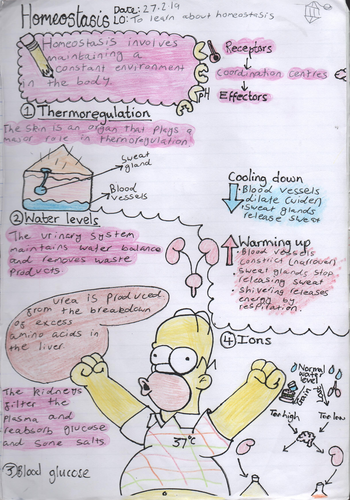 Homeostasis
Date: 27.2.19
LO: To learn about homeostasis
Homeostasis involves
maintaining a
constant environment
in the body.
pH
Receptors
Coordination centres
Effectors
① Thermoregulation
The skin is an organ that plays a
major role in thermoregulation
sweat
gland
Blood
vessels
Cooling down
Blood vessels
dilate (wider)
sweat glands
release sweat
② Water levels
The urinary system
maintains water balance
and removes waste
products
Warming up
• Blood vessels
constrict (narrower)
• Sweat glands stop
releasing sweat
• shivering releases
energy by
respiration.
urea is produced
from the breakdown
of excess
amino acids in
the liver.
④ Ions
Normal
water
level
Too high
Too low
The kidneys
filter the
plasma and
reabsorb glucose
and some salts.
37°C
③ Blood glucose